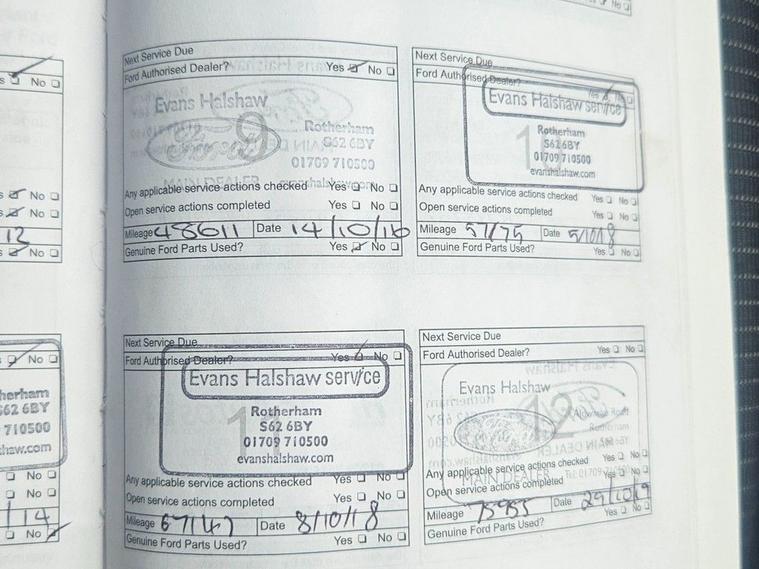 No
s No
Next Service Due
Ford Authorised Dealer? Yes No
Evans Halshaw
9
Rotherham
S62 6BY
01709 710500
MAIN DEALER
Any applicable service actions checked Yes No
Open service actions completed Yes No
Mileage 48611 Date 14/10/16
Genuine Ford Parts Used? Yes No
Next Service Due
Ford Authorised Dealer? Yes No
Evans Halshaw service
Rotherham
S62 6BY
01709 710500
evanshalshaw.com
Any applicable service actions checked Yes No
Open service actions completed Yes No
Mileage Date
Genuine Ford Parts Used? Yes No
s No
s No
12
s No
Next Service Due
Ford Authorised Dealer? Yes No
Evans Halshaw service
11
Rotherham
S62 6BY
01709 710500
evanshalshaw.com
Any applicable service actions checked Yes No
Open service actions completed Yes No
Mileage 67147 Date 8/10/18
Genuine Ford Parts Used? Yes No
Next Service Due
Ford Authorised Dealer? Yes No
Evans Halshaw
12
Rotherham
MAIN DEALER
Any applicable service actions checked Yes No
Open service actions completed Yes No
Mileage 75955 Date 29/10/19
Genuine Ford Parts Used? Yes No
s No
herham
S62 6BY
710500
shaw.com
No
No
14
No